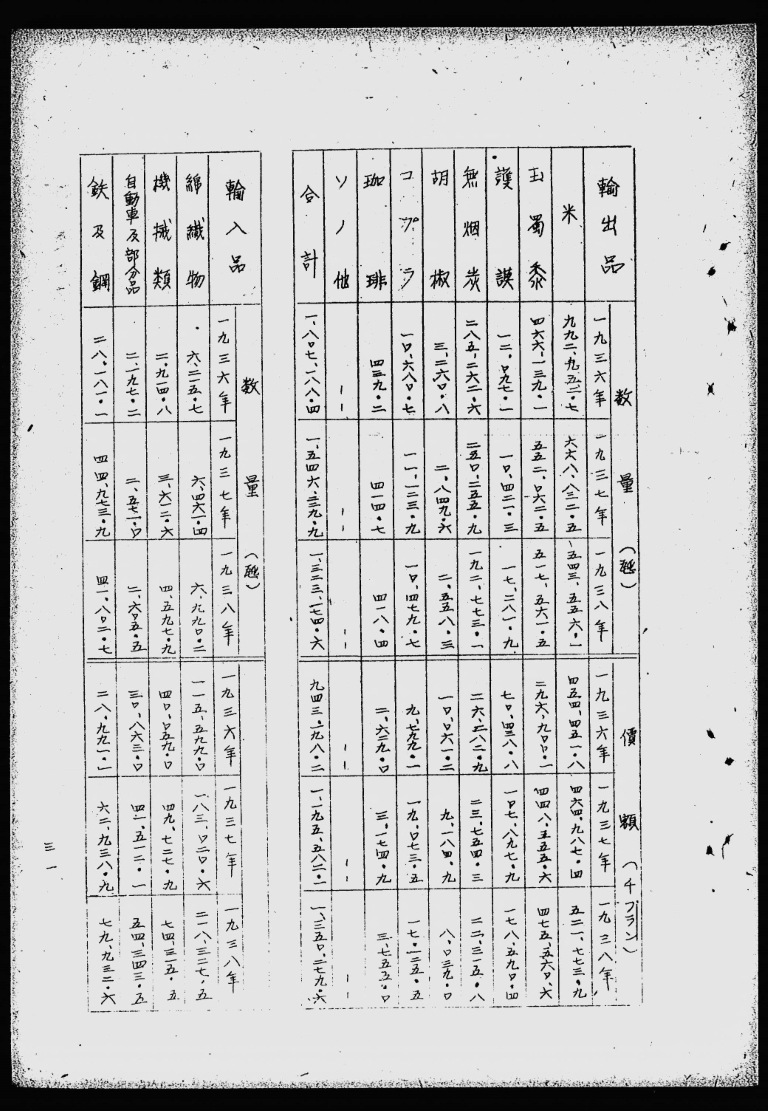 輸出品 数量（瓲） 價額（千フラン）
一九三六年 一九三七年 一九三八年 一九三六年 一九三七年 一九三八年
米 九九二、九五二・七 六六八、八三二・五 五四三、五五六・一 四五四、四五一・八 四六四、九八七・四 五二一、七七三・九
玉蜀黍 四六六、一三九・一 五五二、〇六二・五 五一七、五六一・五 二九六、九〇〇・一 四四八、五五五・六 四七五、五六〇・六
護謨 一二、〇九七・一 一〇、四二一・三 一七、二八一・九 七〇、四三八・八 一〇七、八九七・九 一七八、五九〇・四
無烟炭 二八五、二六二・六 二五〇、二五五・九 一九二、七七三・一 二六、二八二・九 二三、七五四・三 二二、三一五・八
胡椒 三、二六〇・八 二、八四九・六 二、五五八・三 一〇、〇六一・二 九、一八四・九 八、〇三九・〇
コプラ 一〇、六八〇・七 一一、一二三・九 一〇、四七九・七 九、七九九・一 一九、〇七三・五 一七、一二五・五
珈琲 四三九・二 四一四・七 四一八・四 二、六二九・〇 三、一七四・九 三、七五五・〇
ソノ他 ｜｜ ｜｜ ｜｜ ｜｜ ｜｜ ｜｜
合計 一、八〇七、一八八・四 一、五四六、三二九・九 一、三二三、一七四・六 九四三、一九八・二 一、一九五、五八二・一 一、三五〇、二七九・六
輸入品 数量（瓲）
一九三六年 一九三七年 一九三八年 一九三六年 一九三七年 一九三八年
綿織物 六、二一五・七 六、四六一・四 六、九九〇・二 一一五、五九九・〇 一八三、〇二〇・六 二一八、三二七・五
機械類 二、九一四・八 三、六一二・六 四、五九七・九 四〇、〇五九・〇 四九、七二七・九 七四、三一五・五
自動車及部分品 二、一九七・二 二、五七一・〇 二、六〇五・五 三〇、八六三・〇 四一、五一二・一 五四、三四三・五
鉄及鋼 二八、一八一・一 四四、九七三・九 四一、八〇二・七 二八、九九一・一 六二、九三八・九 七九、九三二・六
三一